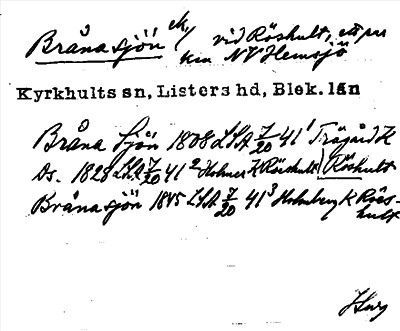 Brånasjön vid Röshult, ett par
km NV Hemsjö
Kyrkhults sn, Listers hd, Blek. län
Bråna Sjön 1808 LSA 7/20 41¹ Trägård K
Ds. 1828 LSA 7/20 41² Holmer K Röeshult Röshult
Brånasjön 1845 LSA 7/20 41³ Holmberg K Röes-
hult